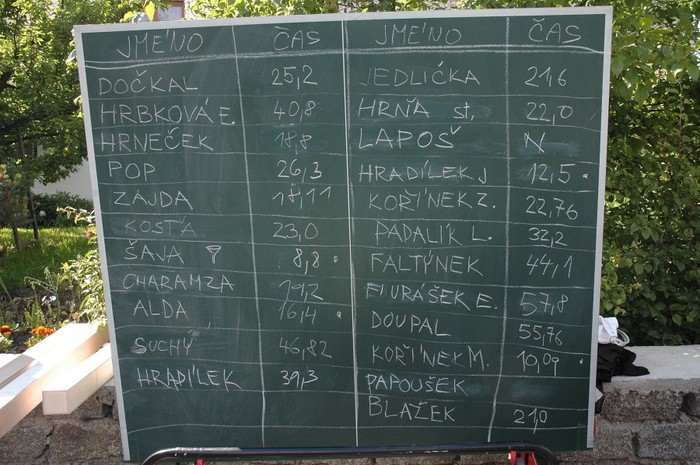 JMÉNO ČAS
DOČKAL 25,2
HRBKOVÁ E. 40,8
HRNEČEK 18,8
POP 26,3
ZAJDA 18,11
KOSŤA 23,0
ŠAJA 8,8
CHARAMZA
ALDA 16,4
SUCHÝ 46,82
HRADÍLEK 39,3
JMÉNO ČAS
JEDLIČKA 21,6
HRŇA st. 22,0
LAPOŠ N
HRADÍLEK J 12,5
KOŘÍNEK Z. 22,76
PADALÍK L. 32,2
FALTÝNEK 44,1
FIURÁŠEK E. 57,8
DOUPAL 55,76
KOŘÍNEK M. 10,09
PAPOUŠEK
BLAŽEK 21,0